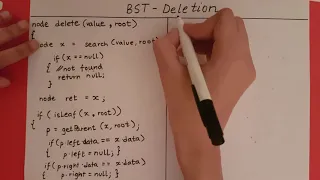 BST - Deletion
node delete (value, root)
{
node x = search (value, root)
if (x == null)
{ // not found
return null;
}
node ret = x;
if (isLeaf (x, root))
{ p = getParent (x, root);
if (p.left.data == x.data)
{ p.left = null; }
if (p.right.data == x.data)
{ p.right = null; }